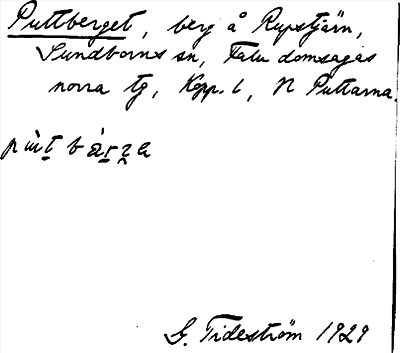 Puttberget, berg å Rupstjärn,
Sundborns sn, Falu domsagas
norra tg, Kopp. l, N Puttarna.
G. Tideström 1929